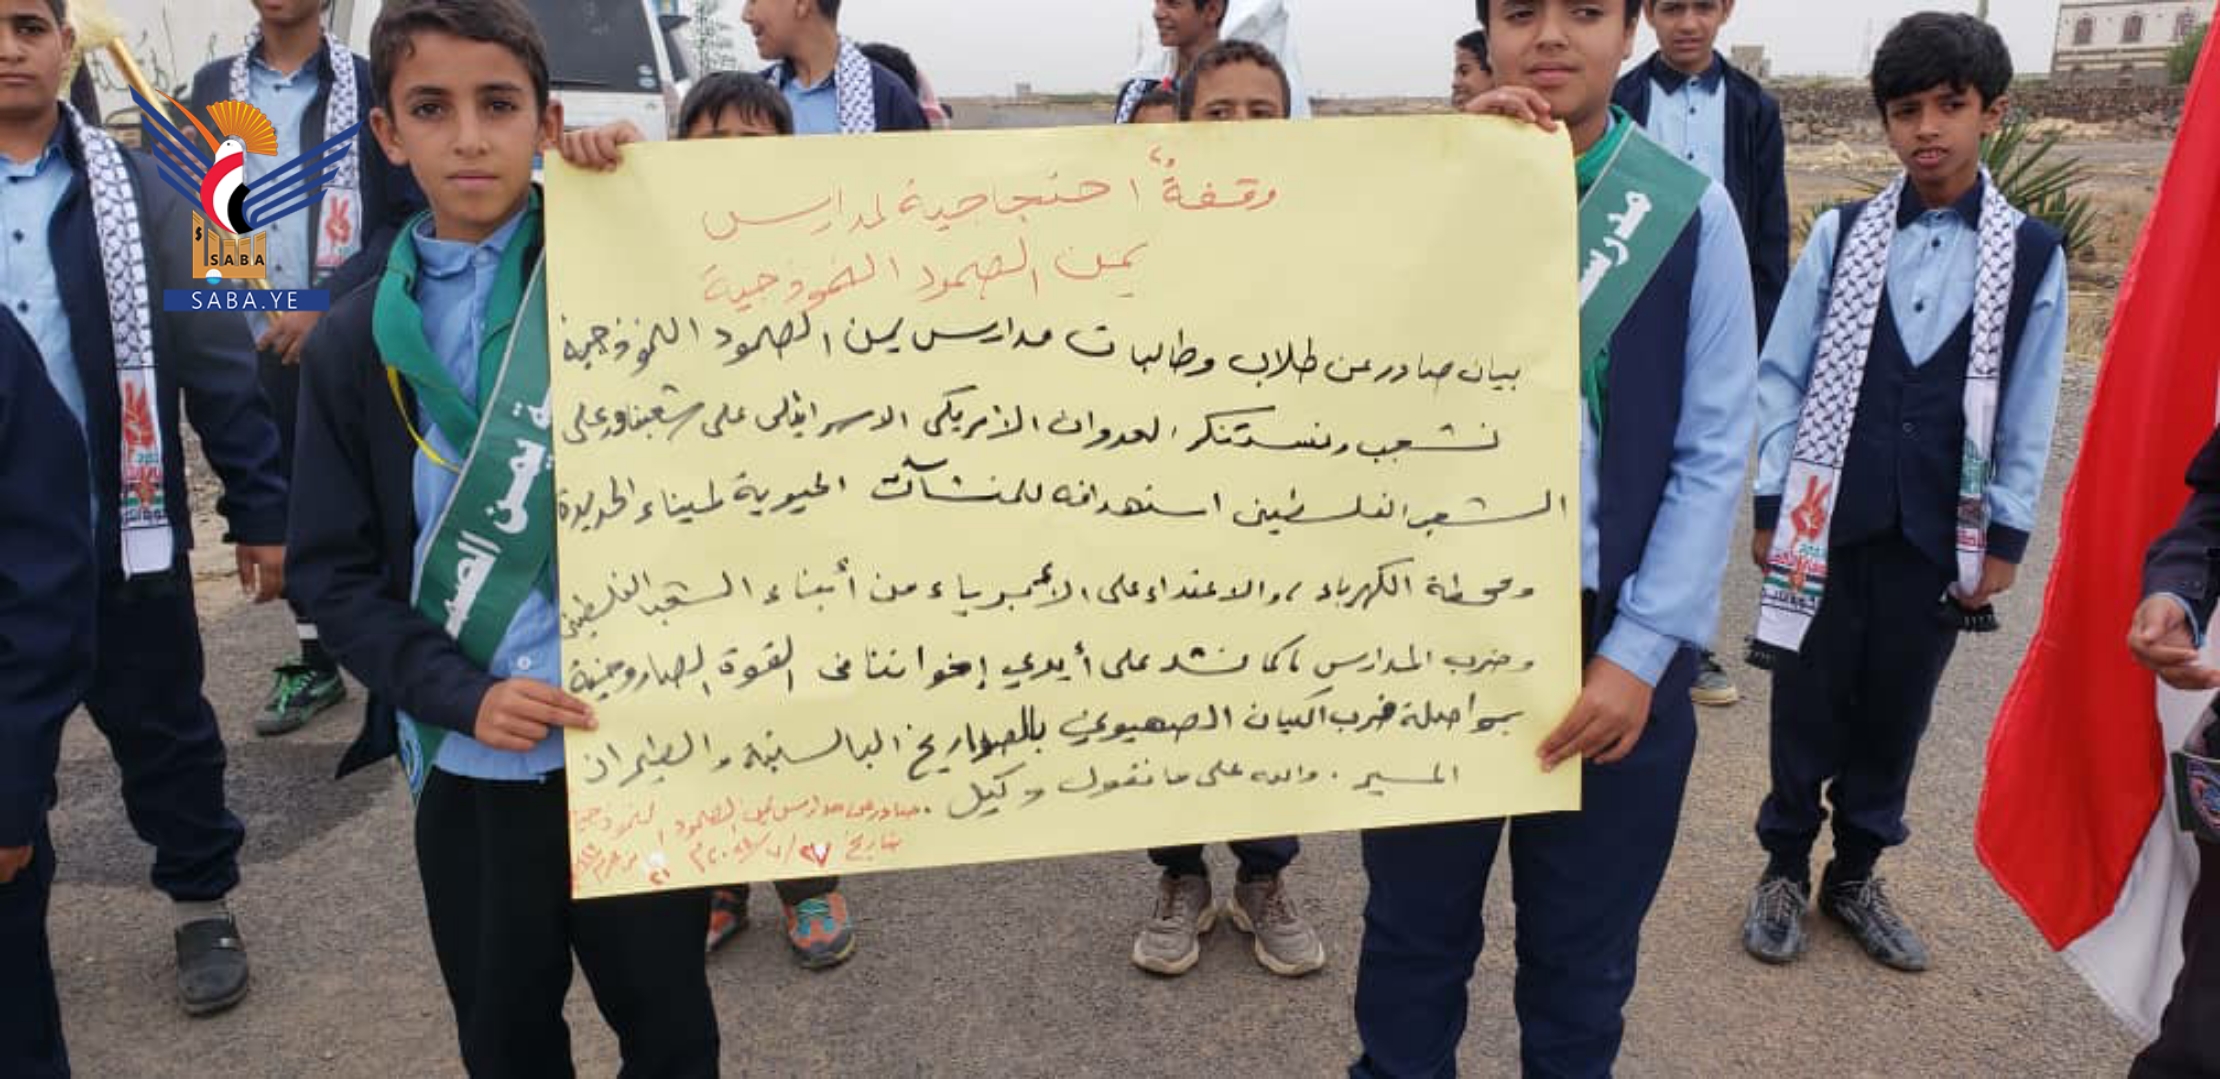 SABA
SABA.YE
وقفةٌ احتجاجية لمدارس
يمن الصمود النموذجية
بيان صادر عن طلاب وطالبات مدارس يمن الصمود النموذجية
نشجب ونستنكر العدوان الأمريكي الاسرائيلي على شعبنا وعلى
الشعب الفلسطيني استهدافه للمنشآت الحيوية لميناء الحديدة
ومحطة الكهرباء، والاعتداء على الأبرياء من أبناء الشعب الفلسطيني
وضرب المدارس، كما نشد على أيدي إخواننا في القوة الصاروخية
بمواصلة ضرب الكيان الصهيوني بالصواريخ البالستية والطيران
المسير. والله على ما نقول وكيل.
صادر عن مدارس يمن الصمود النموذجية
بتاريخ ٢٧/٧/
٢١ محرم
مدرسة
ة يمن الصم